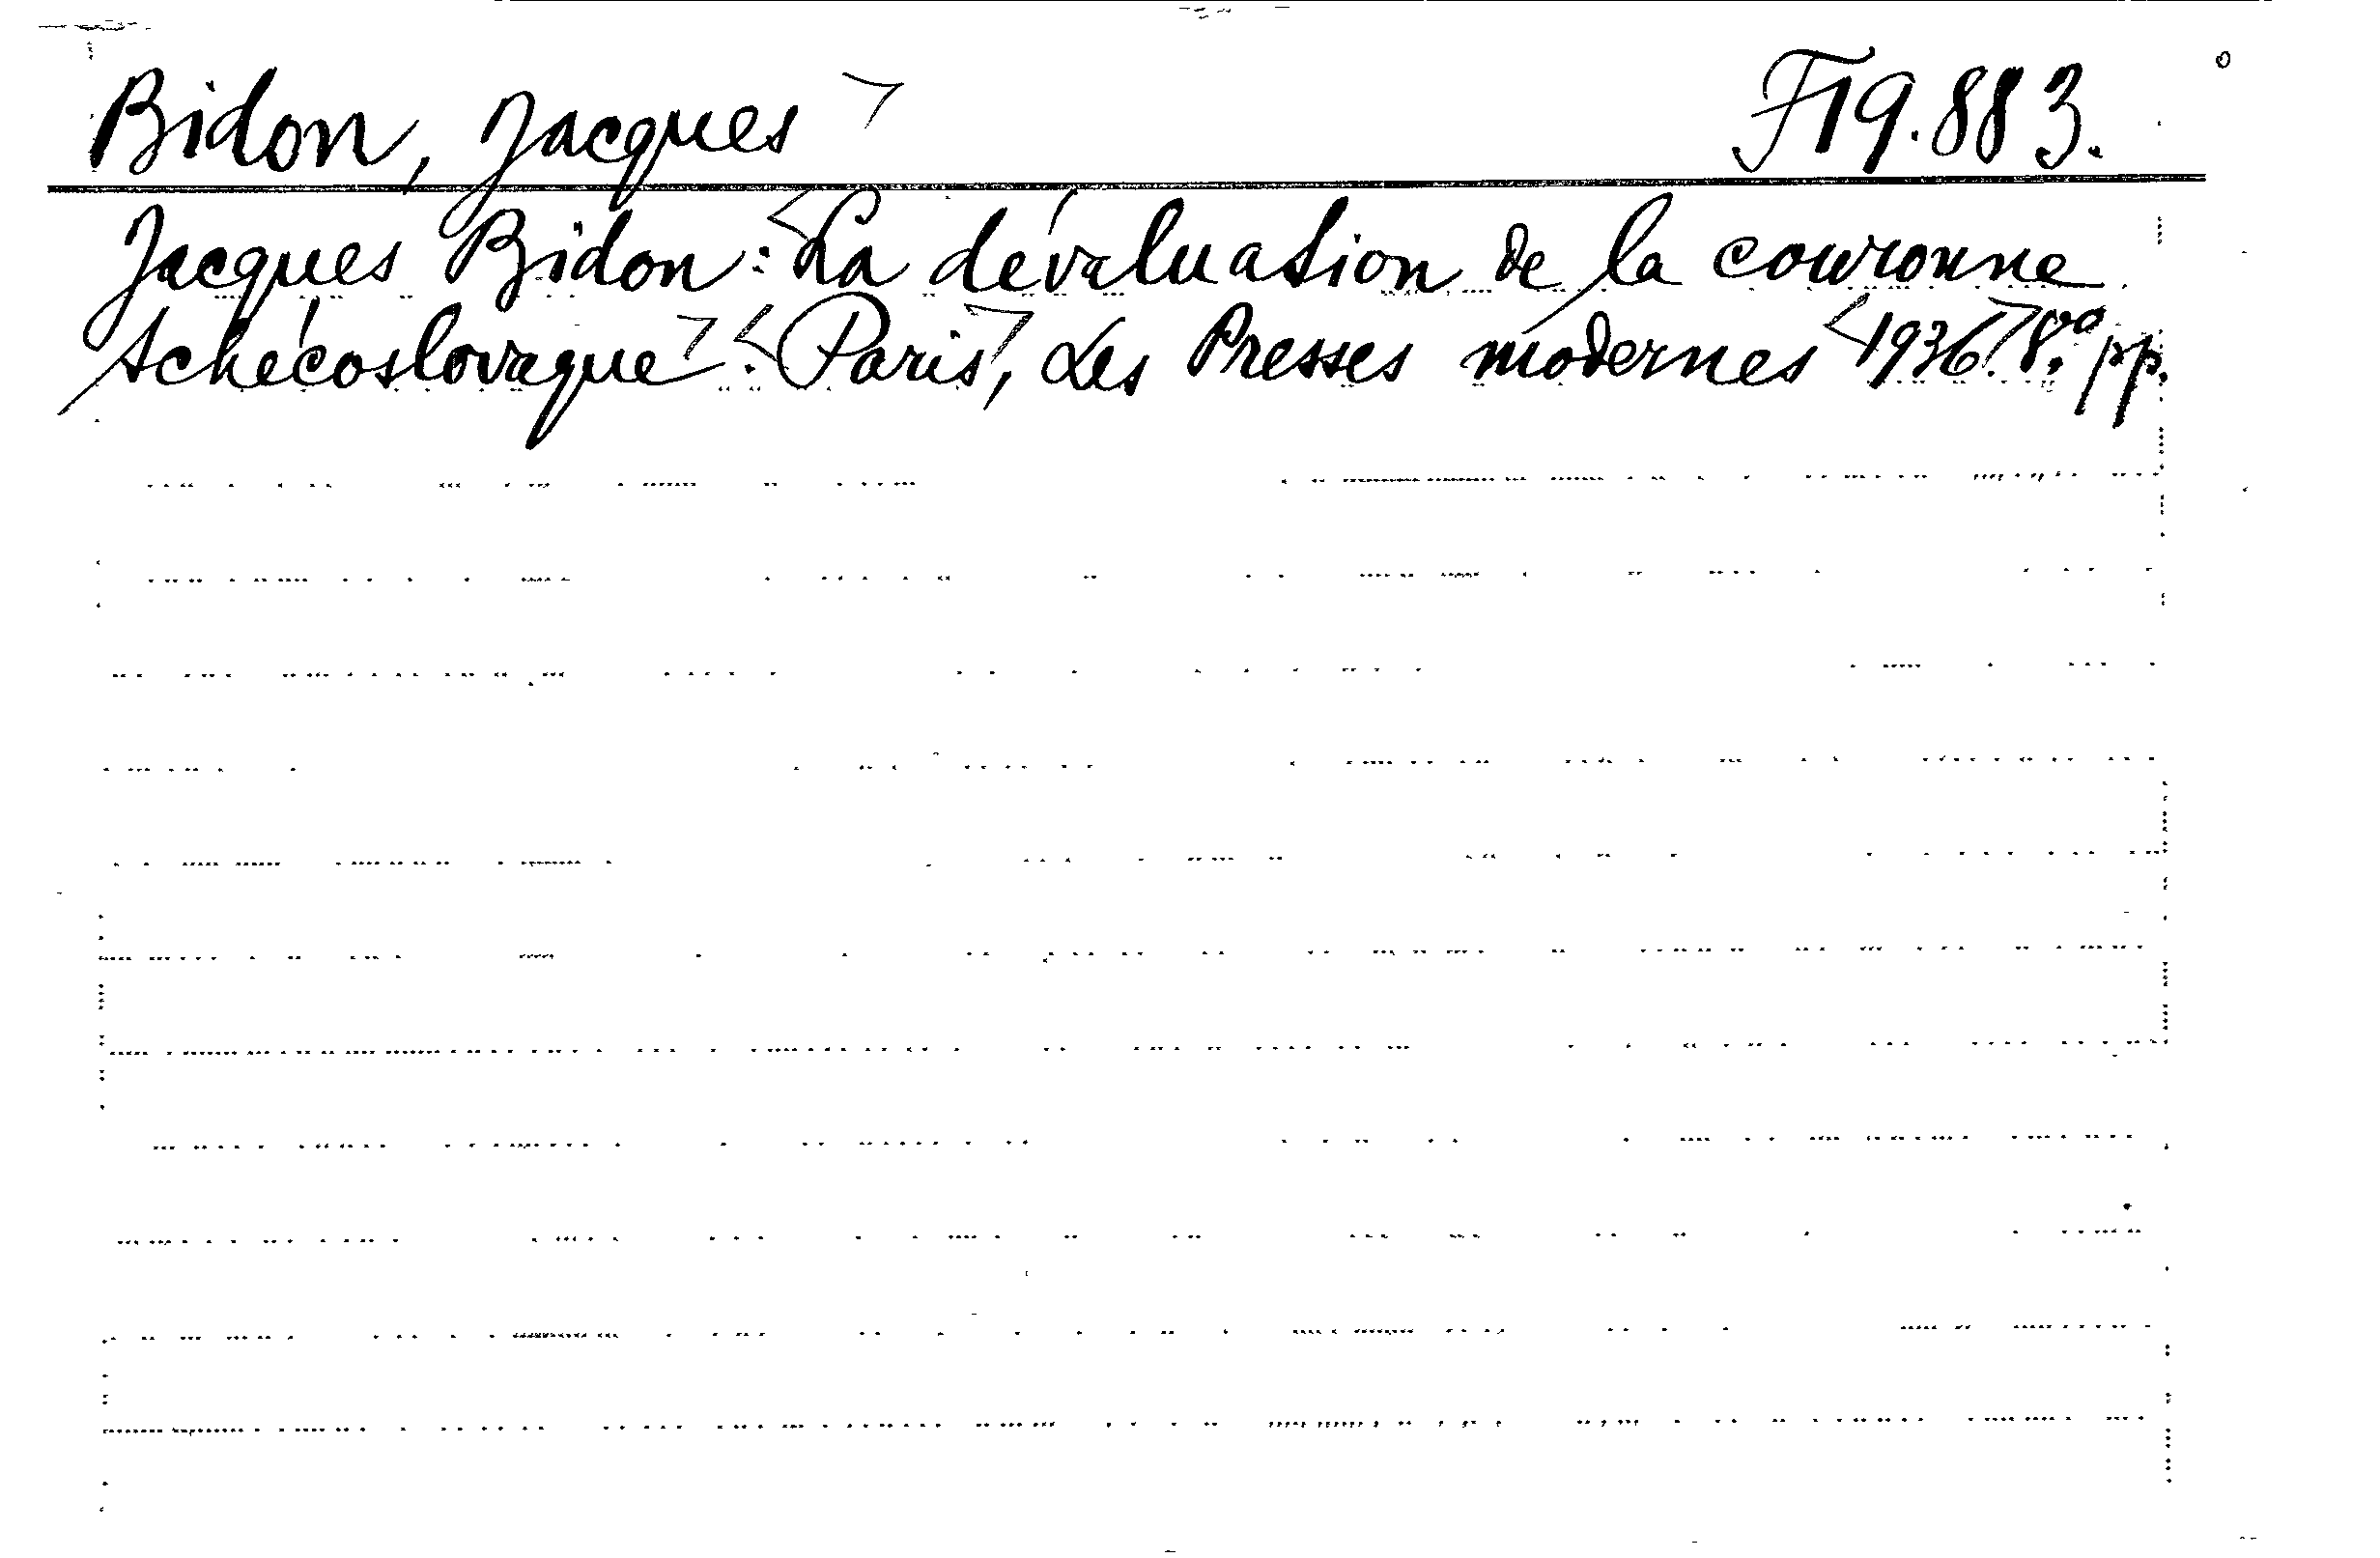 Bidon, Jacques F19.883.
Jacques Bidon: La dévaluation de la couronne
tchécoslovaque. Paris, Les Presses modernes 1936. 8.º pp.